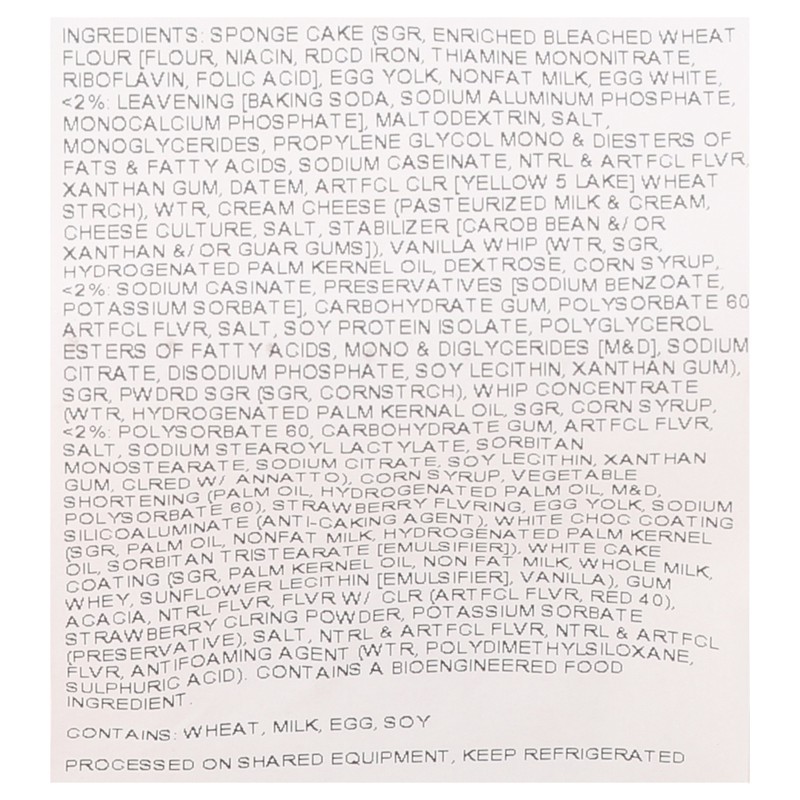 INGREDIENTS: SPONGE CAKE (SGR, ENRICHED BLEACHED WHEAT
FLOUR [FLOUR, NIACIN, RDCD IRON, THIAMINE MONONITRATE,
RIBOFLAVIN, FOLIC ACID], EGG YOLK, NONFAT MILK, EGG WHITE,
<2%: LEAVENING [BAKING SODA, SODIUM ALUMINUM PHOSPHATE,
MONOCALCIUM PHOSPHATE], MALTODEXTRIN, SALT,
MONOGLYCERIDES, PROPYLENE GLYCOL MONO & DIESTERS OF
FATS & FATTY ACIDS, SODIUM CASEINATE, NTRL & ARTFCL FLVR,
XANTHAN GUM, DATEM, ARTFCL CLR [YELLOW 5 LAKE] WHEAT
STRCH), WTR, CREAM CHEESE (PASTEURIZED MILK & CREAM,
CHEESE CULTURE, SALT, STABILIZER [CAROB BEAN &/ OR
XANTHAN &/ OR GUAR GUMS]), VANILLA WHIP (WTR, SGR,
HYDROGENATED PALM KERNEL OIL, DEXTROSE, CORN SYRUP,
<2%: SODIUM CASINATE, PRESERVATIVES [SODIUM BENZOATE,
POTASSIUM SORBATE], CARBOHYDRATE GUM, POLYSORBATE 60
ARTFCL FLVR, SALT, SOY PROTEIN ISOLATE, POLYGLYCEROL
ESTERS OF FATTY ACIDS, MONO & DIGLYCERIDES [M&D], SODIUM
CITRATE, DISODIUM PHOSPHATE, SOY LECITHIN, XANTHAN GUM),
SGR, PWDRD SGR (SGR, CORNSTRCH), WHIP CONCENTRATE
(WTR, HYDROGENATED PALM KERNAL OIL, SGR, CORN SYRUP,
<2%: POLYSORBATE 60, CARBOHYDRATE GUM, ARTFCL FLVR,
SALT, SODIUM STEAROYL LACTYLATE, SORBITAN
MONOSTEARATE, SODIUM CITRATE, SOY LECITHIN, XANTHAN
GUM, CLRED W/ ANNATTO), CORN SYRUP, VEGETABLE
SHORTENING (PALM OIL, HYDROGENATED PALM OIL, M&D,
POLYSORBATE 60), STRAWBERRY FLVRING, EGG YOLK, SODIUM
SILICOALUMINATE (ANTI-CAKING AGENT), WHITE CHOC COATING
(SGR, PALM OIL, NONFAT MILK, HYDROGENATED PALM KERNEL
OIL, SORBITAN TRISTEARATE [EMULSIFIER]), WHITE CAKE
COATING (SGR, PALM KERNEL OIL, NON FAT MILK, WHOLE MILK,
WHEY, SUNFLOWER LECITHIN [EMULSIFIER], VANILLA), GUM
ACACIA, NTRL FLVR, FLVR W/ CLR (ARTFCL FLVR, RED 40),
STRAWBERRY CLRING POWDER, POTASSIUM SORBATE
(PRESERVATIVE), SALT, NTRL & ARTFCL FLVR, NTRL & ARTFCL
FLVR, ANTIFOAMING AGENT (WTR, POLYDIMETHYLSILOXANE,
SULPHURIC ACID). CONTAINS A BIOENGINEERED FOOD
INGREDIENT.
CONTAINS: WHEAT, MILK, EGG, SOY
PROCESSED ON SHARED EQUIPMENT, KEEP REFRIGERATED